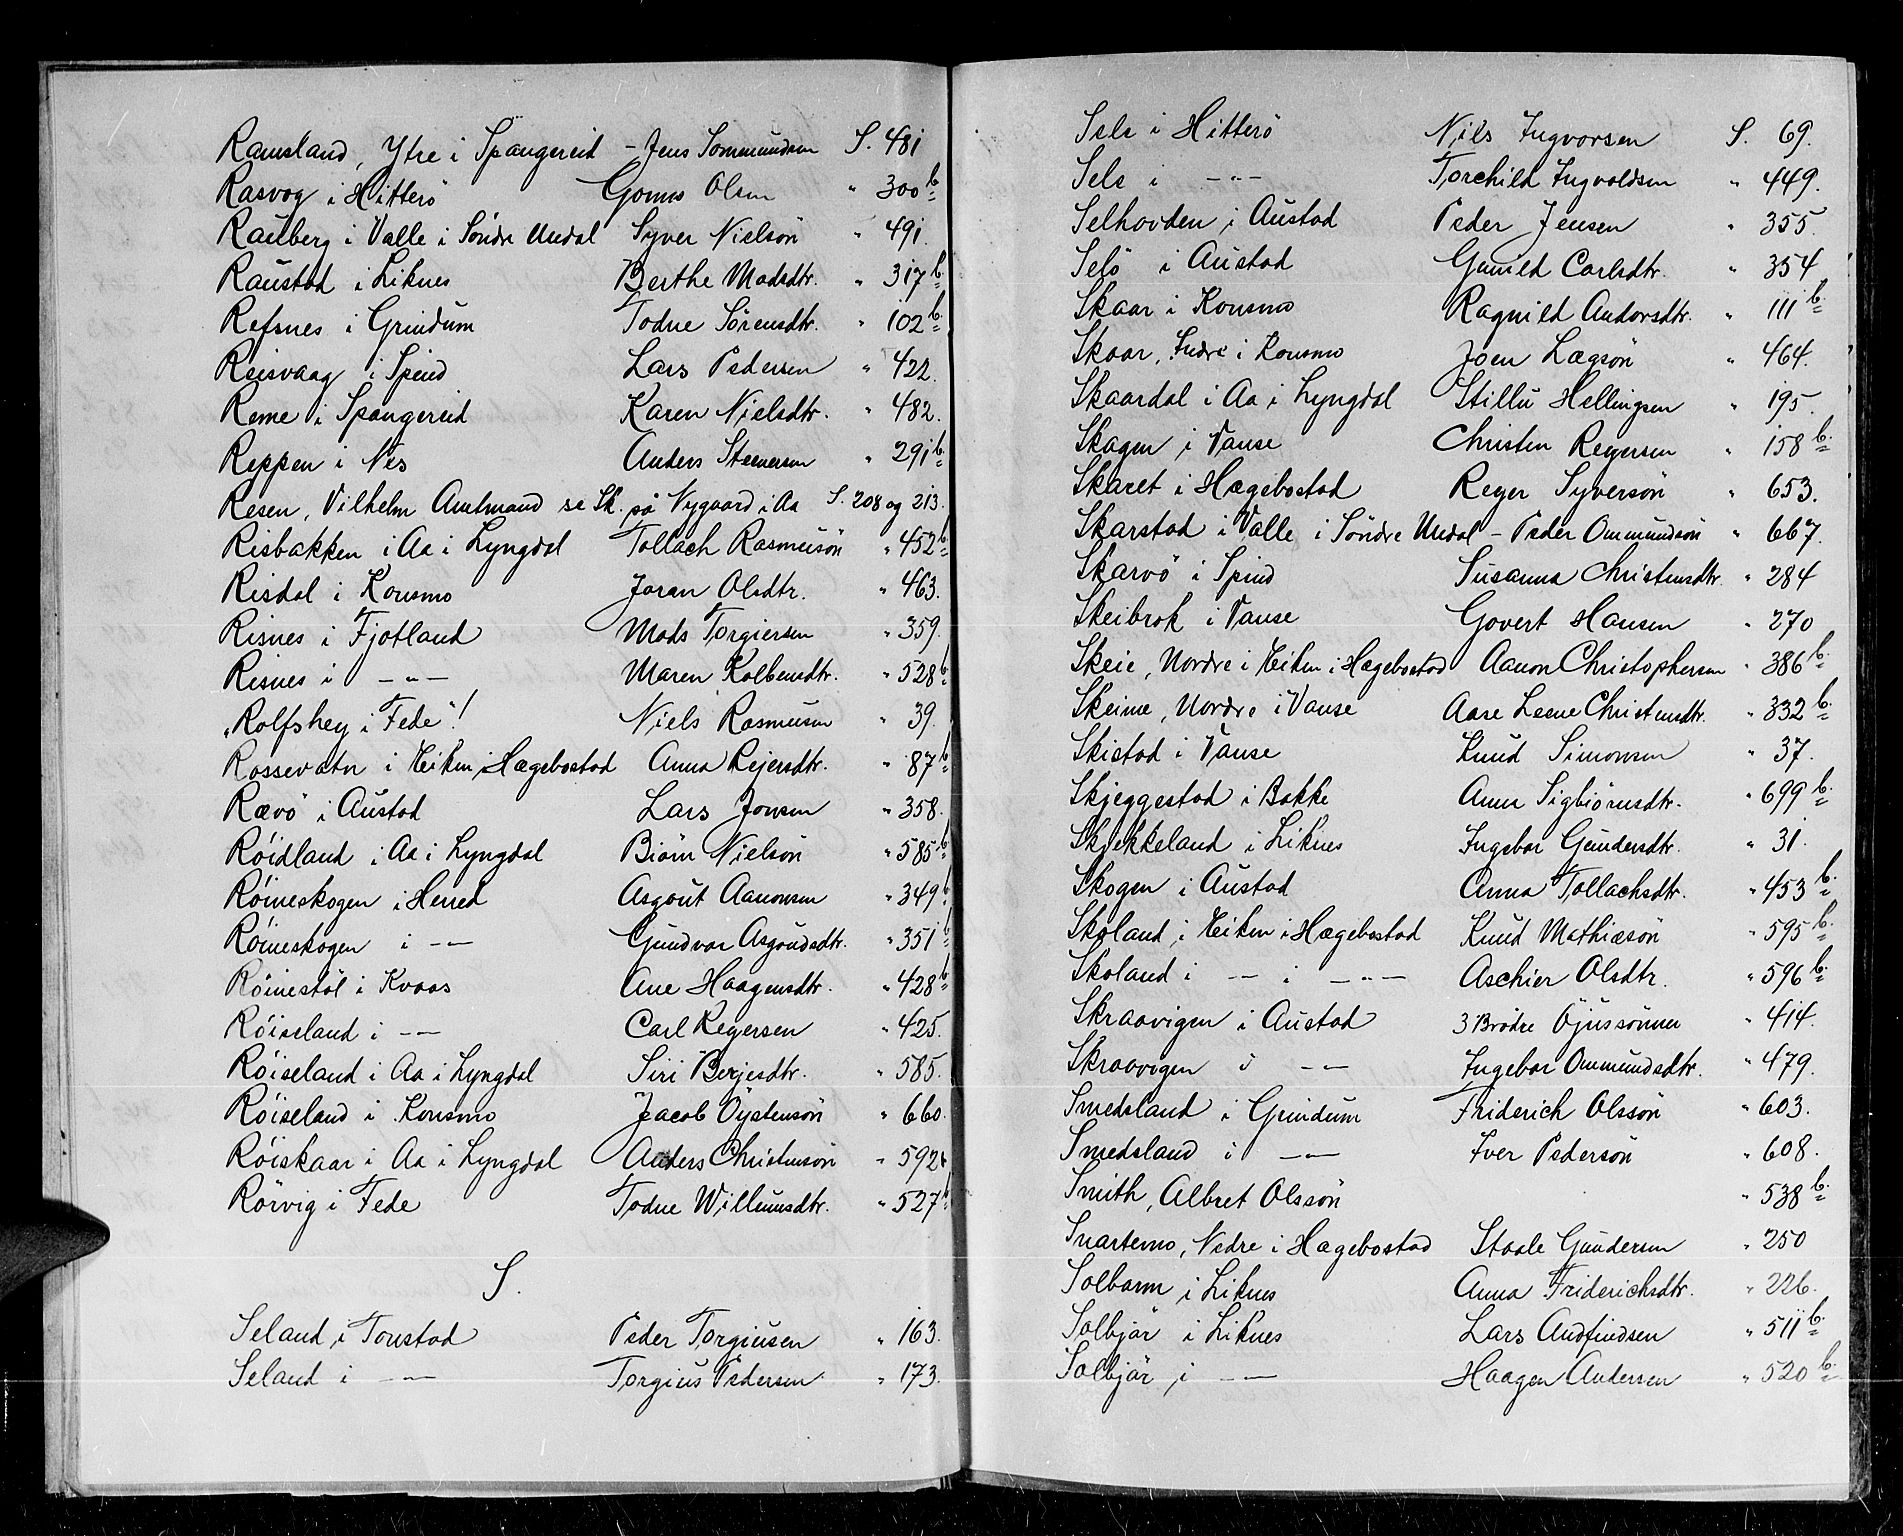 Ramsland, Ytre i Spangereid - Jens Tommundsen S. 481
Rasvog i Hitterö Gonns Olsen " 300 b.
Rauberg i Valle i Söndre Undal Syver Nielsön " 491.
Raustad i Liknes Berthe Madsdtr. " 317 b.
Refsnes i Grindum Todne Sörensdtr. " 102 b.
Reisvaag i Spind Lars Pedersen " 422.
Reme i Spangereid Karen Nielsdtr. " 482.
Reppen i Nes Anders Steenersen " 291 b.
Resen, Vilhelm Amtmand se Sk. på Nygaard i Aa S. 208 og 213.
Risbakken i Aa i Lyngdal Tollach Rasmusön " 452 b.
Risdal i Konsmo Joran Olsdtr. " 463.
Risnes i Fjotland Mads Torgiersen " 359.
Risnes i -"- Maren Kolbensdtr. " 528 b.
"Rolfshey i Fede"! Niels Rasmusen " 39.
Rossevatn i Eiken, Hægebostad Anna Rejersdtr. " 87 b.
Rævö i Austad Lars Jonsen " 358.
Röidland i Aa i Lyngdal Biörn Nielsön " 585 b.
Röineskogen i Herred Asgout Aanonsen " 349 b.
Röineskogen i -"- Gundvor Asgoudsdtr. " 351 b.
Röinestöl i Kvaas Ane Haagensdtr. " 428 b.
Röiseland i -"- Carl Reyersen " 425.
Röiseland i Aa i Lyngdal Siri Berjesdtr. " 585.
Röiseland i Konsmo Jacob Öystensön " 660.
Röiskaar i Aa i Lyngdal Anders Christensön " 592 b
Rörvig i Fede Todne Willumsdtr. " 527 b.
S.
Seland i Tonstad Peder Torgiusen " 163.
Seland i -"- Torgius Pedersen " 173.
Sels i Hitterö Nils Ingvorsen S. 69.
Sels i -"- Torchild Ingvoldsen " 449.
Selhovden i Austad Peder Jensen " 355.
Selö i Austad Gunild Carlsdtr. " 354
Skaar i Konsmo Ragnild Andorsdtr. " 111 b.
Skaar, Indre i Konsmo Joen Lægsön " 464.
Skaardal i Aa i Lyngdal Stillu Hellingsen " 195.
Skagen i Vanse Christen Reyersen " 158 b.
Skaret i Hægebostad Reyer Syversön " 653.
Skarstad i Valle i Söndre Undal - Peder Ommundsön " 667.
Skarvö i Spind Susanna Christensdtr. " 284
Skeibrok i Vanse Govert Hansen " 270
Skeie, Nordre i Eiken i Hægebostad Aanon Christophersen " 386 b.
Skeime, Nordre i Vanse Aase Leene Christensdtr. " 332 b.
Skistad i Vanse Knud Simonsen " 37.
Skjeggestad i Bakke Anna Sigbiörnsdtr. " 699 b.
Skjekkeland i Liknes Ingebor Gundersdtr. " 31.
Skogen i Austad Anna Tollachsdtr. " 453 b.
Skoland i Eiken i Hægebostad Knud Mathiæsön " 595 b.
Skoland i -"- i -"- Aschier Olsdtr. " 596 b.
Skraavigen i Austad 3 Brödre Öjussönner " 414.
Skraavigen i -"- Ingebor Ommundsdtr. " 479.
Smedsland i Grindum Friderich Olssön " 603.
Smedsland i -"- Iver Pedersön " 608.
Smith, Albret Olssön " 538 b.
Snartemo, Nedre i Hægebostad Staale Gundersen " 250
Solbarm i Liknes Anna Friderichsdtr. " 226.
Solbjör i Liknes Lars Andfindsen " 511 b.
Solbjör i -"- Haagen Andersen " 520 b.